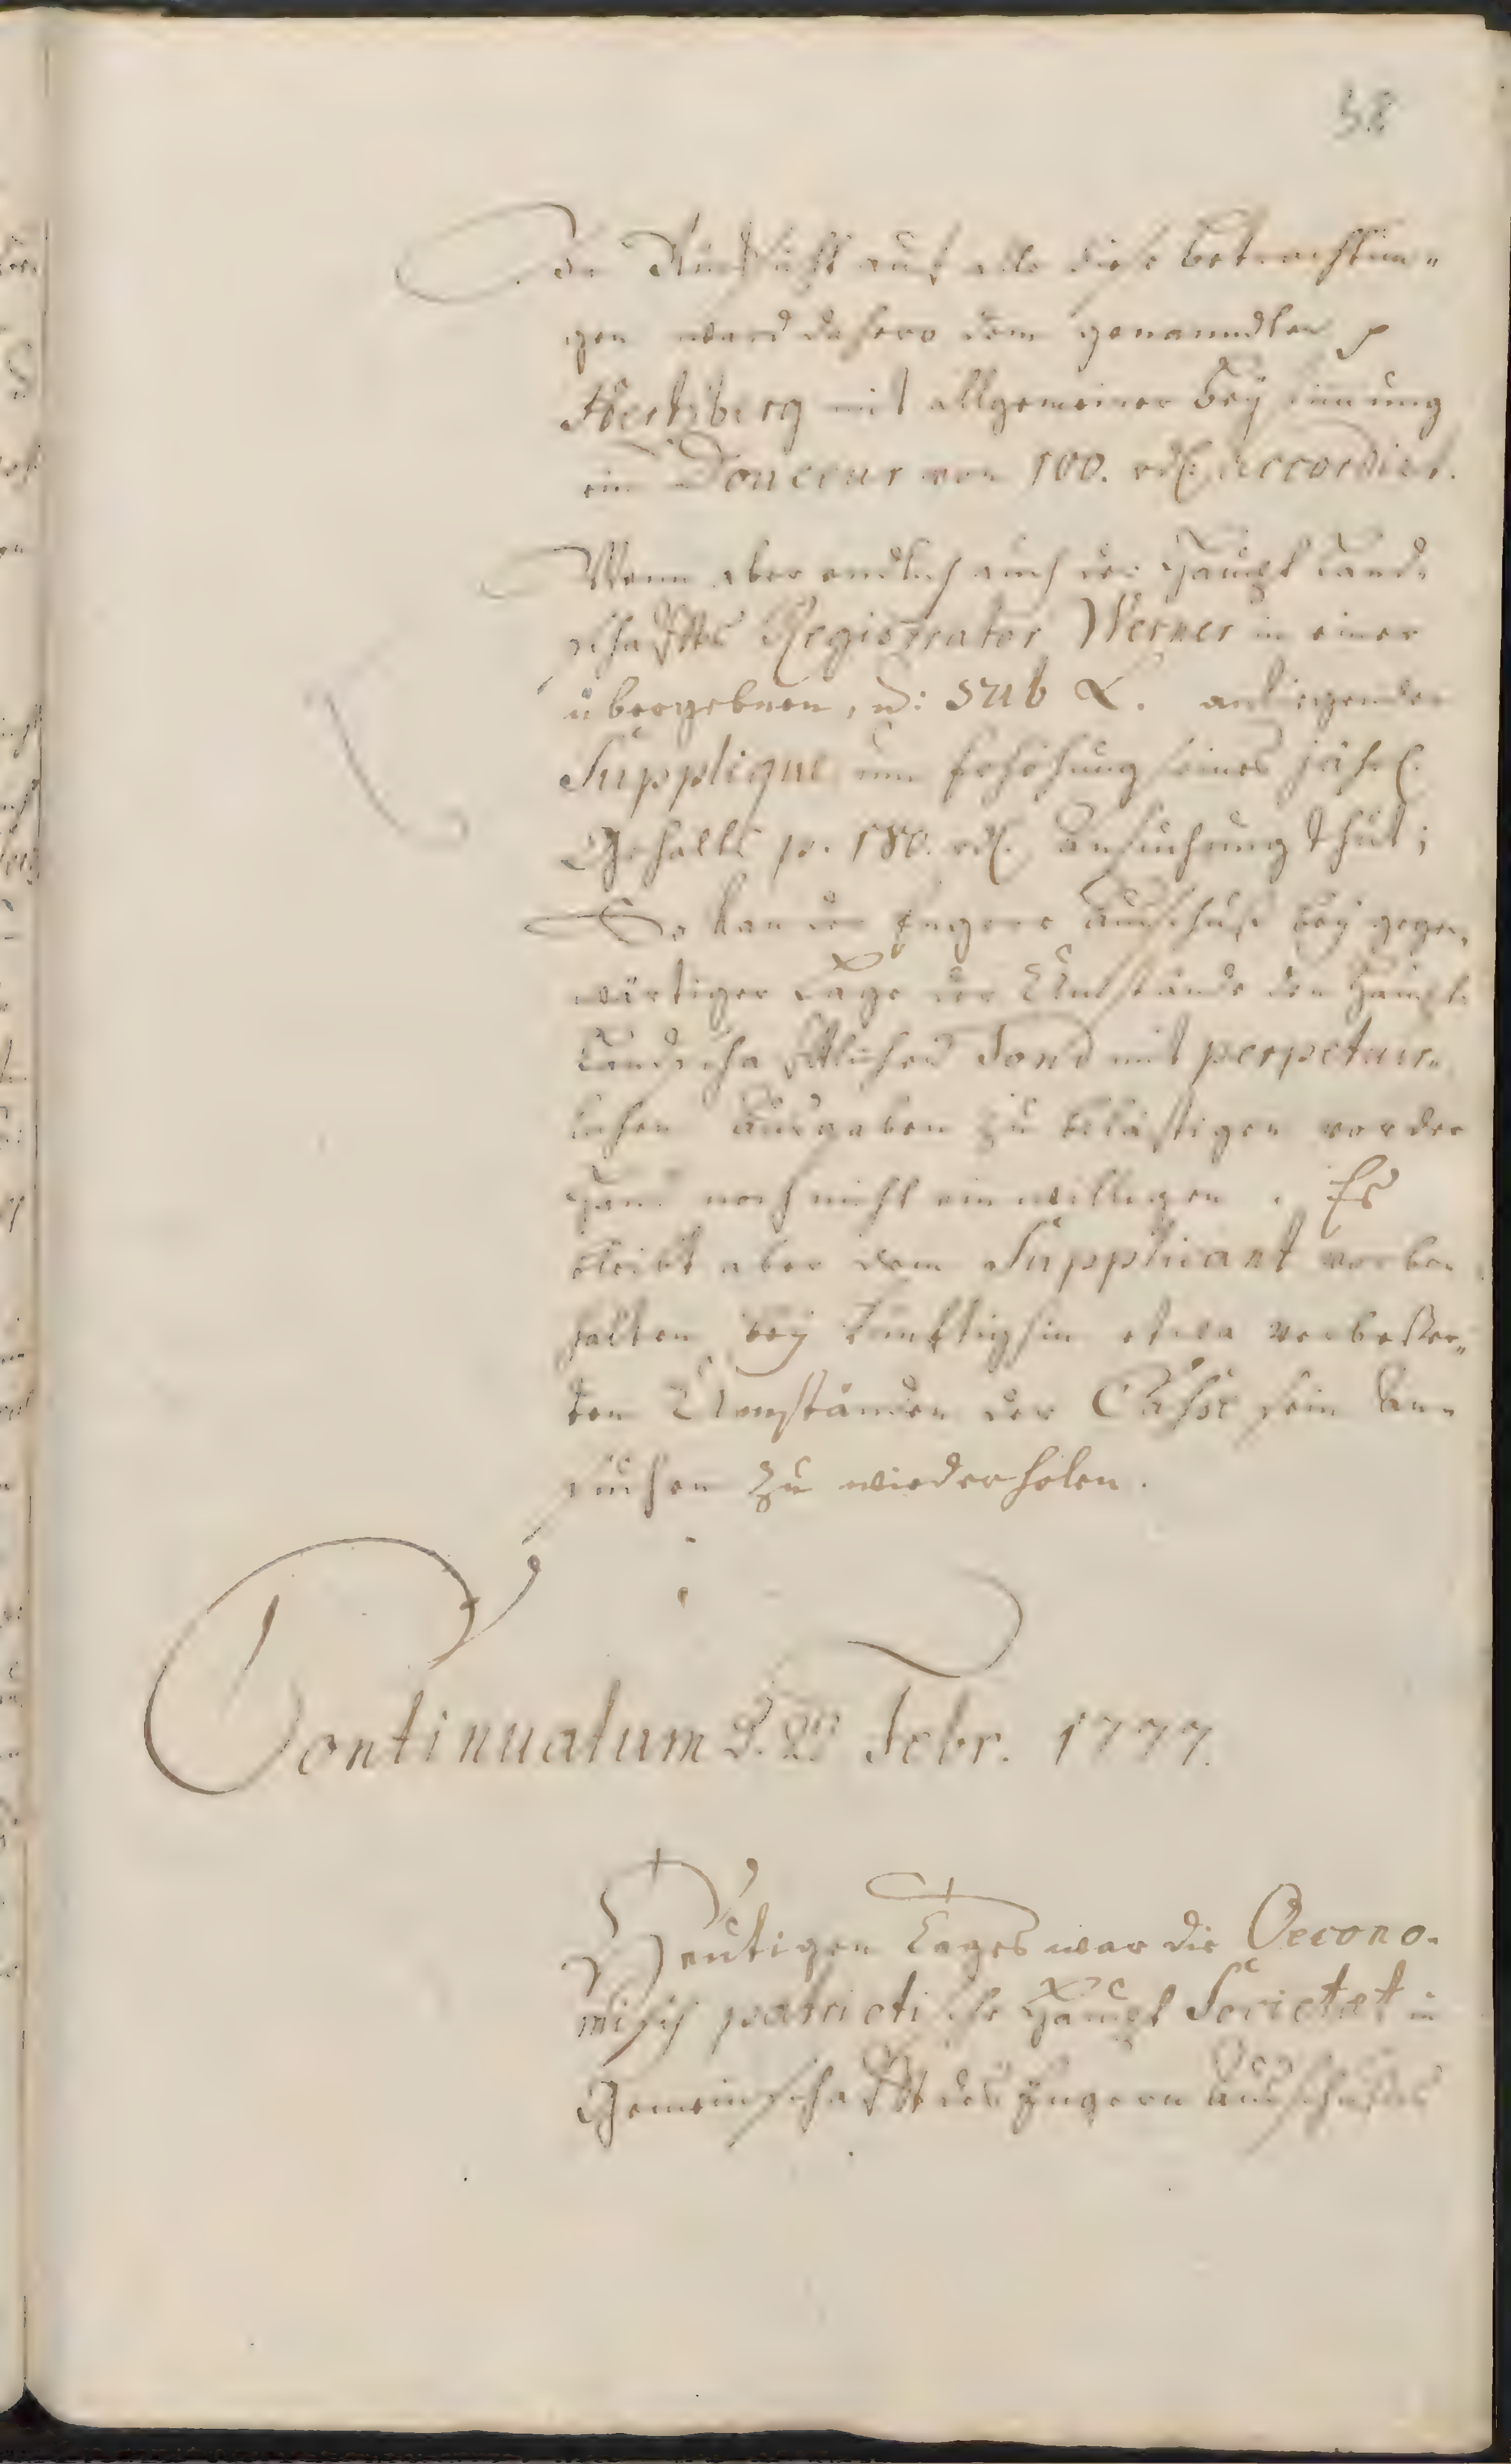 38
In Rücksicht auf alle diese Betrachtun-
gen ward dahero dem genanndten p
Hertzberg mit allgemeiner Beystimmung
ein Douceur von 100. rthl. accordirt.
Wenn aber endlich auch der Haupt Land-
schaffts Registrator Werner in einer
übergebnen, u: sub L. anliegenden
Supplique um Erhöhung seines jährl.
Gehalts p. 180. rthl. Ansuchung thut;
So kan der Engere Ausschuß bey gegen-
wärtiger Lage der Umstände den Haupt-
Landschafftlichen Fond mit perpetuir-
lichen Ausgaben zu belästigen vor der
Hand noch nicht einwilligen. Es
bleibt aber dem Supplicant vorbe-
halten bey künftighin etwa verbeßer-
ten Umständen der Casse sein An-
suchen zu wiederholen.
Continuatum d. Febr. 1777.
Heutigen Tages war die Oecono-
misch patriotische Haupt Societæt in
Gemeinschafft des Engern Ausschußes